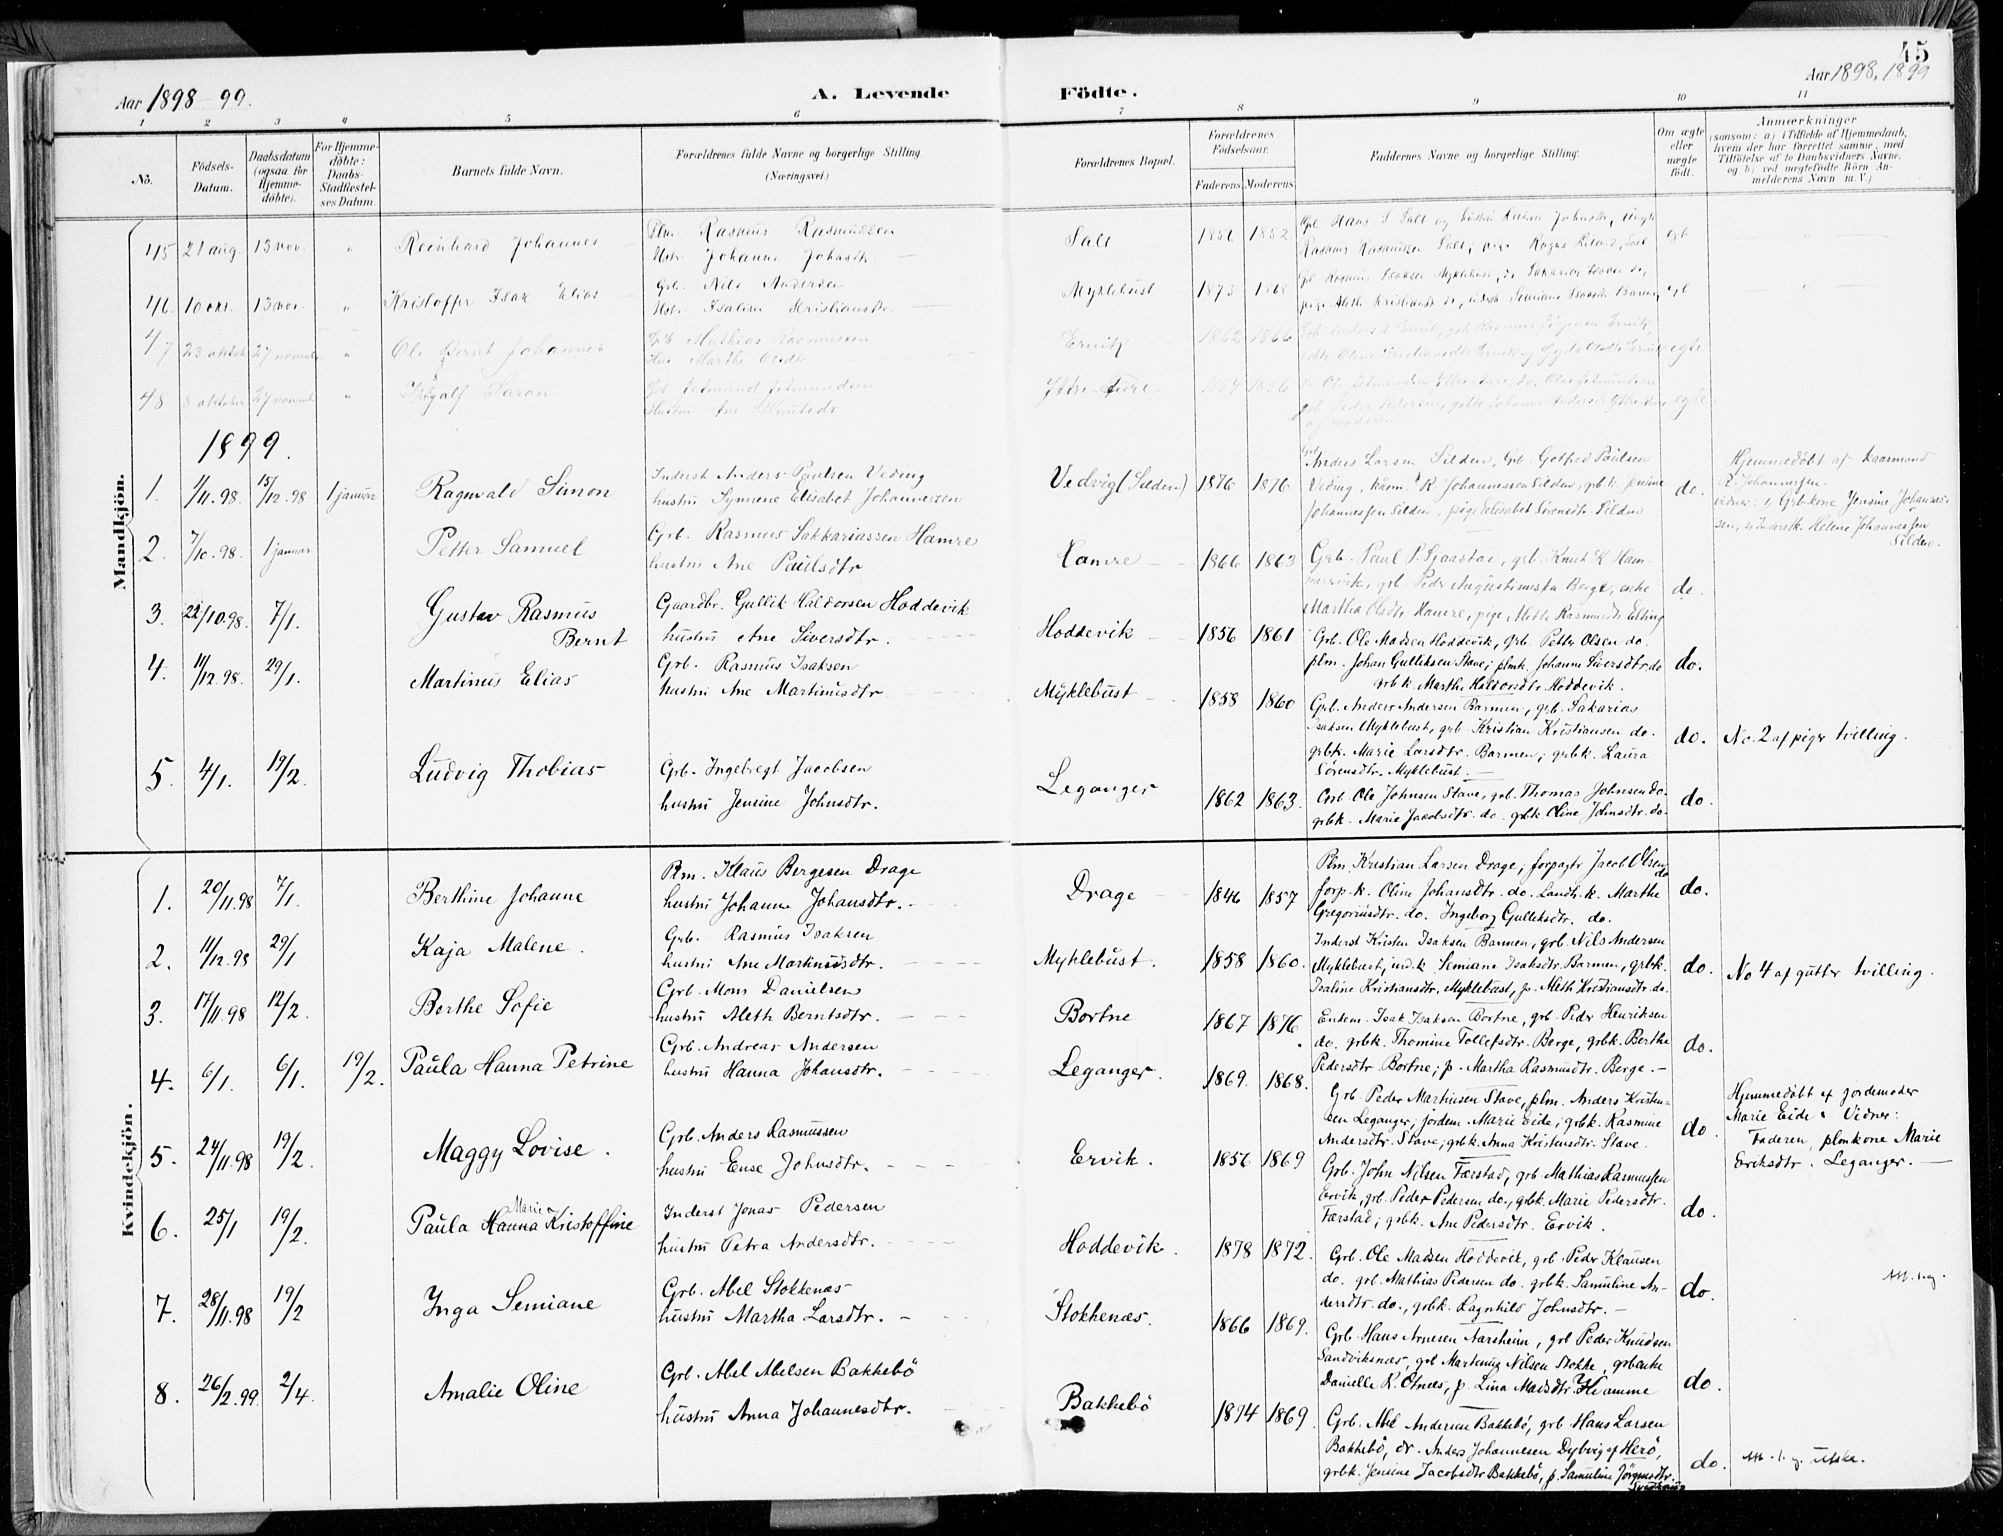 45
Aar 1898-99.
A. Levende Födte.
Aar 1898. 1899
1 2 3 4 5 6 7 8 9 10 11
No.
Födsels-Datum.
Daabsdatum (ogsaa for Hjemme-döbte).
For Hjemme-döbte: Daabs-Stadfæstel-ses Datum.
Barnets fulde Navn.
Forældrenes fulde Navne og borgerlige Stilling (Næringsvei.)
Forældrenes Bopæl.
Forældrenes Födselsaar.
Faderens. Moderens.
Faddernes Navne og borgerlige Stilling.
Om ægte eller uægte födt.
Anmærkninger
(saasom: a) i Tilfælde af Hjemmedaab,
hvem der har forrettet samme, med
Tilföielse af to Daabsvidners Navne.
og b) ved uægtefödte Börn An-
melderens Navn m. V.)
Mandkjön.
45 21 aug 13 nov. " Reinhard Johannes
Plm Rasmus Rasmussen
Hstr Johanne Johsdtr.
Salt 1851 1852
Hans S Salt og hustru
Rasmus Rasmussen Salt, pige
egt
46. 10 okt. 13 nov. " Kristoffer Isak Elias
Grb. Nils Andersen
Hstr. Isaline Kristiansdtr.
Myklebust 1873 1868
Rasmus Isaksen Myklebust, do Sakarias Isaksen do,
pige Aleth Kristiansdtr do,
egt
47 23 oktob 27 novemb " Ole Bernt Johannes
Grb Mathias Rasmussen
Hus Marthe Olsdtr
Ervik 1862 1866
Ervik, grb Rasmus Jörgensen Ervik,
egte
48 8 oktober 27 novemb " Saron
Grb
Hustru Ane
Ytre Fure 1854 1856
egte
1899.
1. 1/11.98 15/12.98 1 januar Ragnvald Simon
Inderst Anders Paulsen Veding
hustru Synnene Elisabet Johannessen
Vedvig (Silden) 1876 1876
Anders Larsen Silden, Grb. Gotfred Paulsen
Veding, kaarm. R Johannessen Silden, grbk. Jensine
Johannesen Silden, pige Elisabet Sivertsdtr Silden
do.
Hjemmedöbt af kaarmand
R. Johannesen.
vidner: 1) Grbkone Jensine Johannes-
sen, 2) Inderstk. Helene Johannessen
Silden.
2. 7/10.98. 1 januar Petter Samuel
Grb. Rasmus Sakkariassen Hamre
hustru Ane Paulsdtr
Hamre 1866 1863
Grb. Paul P. Sjaastad, grb. Knut K Ham-
mersvik, grb Peder Augustinussen Berge, enke
Martha Olsdtr Hamre, pige Alette Rasmusdtr Elting
do.
3. 22/10.98. 7/1. Gustav Rasmus
Bernt
Gaardbr. Gullik Haldorsen Hoddevik
hustru Ane Siversdtr.
Hoddevik 1856 1861
Grb. Ole Madsen Hoddevik, Grb. Petter Olsen do.
plm. Johan Gulliksen Stave; plmk. Johanne Siversdtr do
grbk. Marthe Haldorsdtr Hoddevik.
do.
4. 11/12.98. 29/1. Martinus Elias
Grb. Rasmus Isaksen
hustru Ane Martinusdtr
Myklebust 1858 1860
Grb. Anders Andersen Barmen, grb. Sakarias
Isaksen Myklebust, grb Kristian Kristiansen do.
grbk. Marie Larsdtr. Barmen; grbk. Laura
Sörensdtr. Myklebust.
do.
No. 2 af piger tvilling.
5. 4/1. 19/2. Ludvig Thobias
Grb. Ingebregt Jacobsen
hustru Jensine Johnsdtr.
Leganger 1862 1863.
Grb. Ole Johnsen Stave, grb. Thomas Johnsen do.
grbk. Marie Jacobsdtr. do. grbk. Oline Johnsdtr. do.
do.
Kvindekjön.
1. 20/11.98 7/1. Berthine Johanne
Plm. Klaus Bergesen Drage
hustru Johanne Johansdtr.
Drage 1846 1857
Plm. Kristian Larsen Drage, forpagtr Jacob Olsen do
forp.k. Oline Johansdtr. do. Landh.k. Marthe
Gregoriusdtr. do. Ingeborg Gulliksdtr. do.
do.
2. 11/12.98 29/1 Kaja Malene.
Grb. Rasmus Isaksen
hustru Ane Martinusdtr.
Myklebust. 1858 1860.
Inderst Kristen Isaksen Barmen, grb. Nils Andersen
Myklebust, ind.k Semiane Isaksdtr. Barmen, grbk.
Isaline Kristiansdtr. Myklebust, p. Aleth Kristiansdtr. do.
do.
No 4 af gutter tvilling.
3. 17/11.98 12/2. Berthe Sofie
Grb. Mons Danielsen
hustru Aleth Berntsdtr.
Bortne 1867 1876.
Enkem. Isak Isaksen Bortne, grb. Peder Henriksen
do. grbk. Thomine Tollefsdtr. Berge, grbk. Berthe
Pedersdtr Bortne; p. Martha Rasmusdtr. Berge.
do.
4. 6/1. 6/1. 19/2. Paula Hanna Petrine
Grb. Andreas Andersen
hustru Hanna Johansdtr.
Leganger. 1869. 1868.
Grb. Peder Martinsen Stave, plm. Anders Kristen-
sen Leganger; jordem. Marie Eide; grbk. Rasmine
Andersdtr. Stave; grbk. Anna Kristensdtr. Stave.
do.
Hjemmedöbt af jordemoder
Marie Eide. Vidner:
Faderen, plmkone Marie
Eriksdtr. Leganger.
5. 24/11.98 19/2. Maggy Lovise.
Grb. Anders Rasmussen
hustru Ense Johnsdtr.
Ervik. 1856 1869
Grb. John Nilsen Færstad, grb Mathias Rasmussen
Ervik, grb. Peder Pedersen do., grbk. Marie Pedersdtr.
Færstad; grbk. Ane Pedersdtr. Ervik.
do.
6. 25/1 19/2. Paula Hanna Marie Kristoffine
Inderst Jonas Pedersen
hustru Petra Andersdtr.
Hoddevik. 1878 1872.
Grb. Ole Madsen Hoddevik, grb Peder Klausen
do. grb. Mathias Pedersen do. grbk. Samuline An-
dersdtr. do., grbk. Ragnhild Johnsdtr.
do.
7. 28/11.98 19/2 Inga Semiane
Grb. Abel Stokkenæs
hustru Martha Larsdtr.
Stokkenæs. 1866 1869.
Grb. Hans Arnesen Aarsheim, grb Peder Knudsen
Sandviksnæs, grb Martinus Nilsen Stokke, grbenke
Danielle K. Otnæs, p. Lina Madsdtr Hamme
do.
8. 26/2.99. 2/4. Amalie Oline
Grb. Abel Abelsen Bakkebö
hustru Anna Johannesdtr.
Bakkebö 1874 1869.
Grb. Abel Andersen Bakkebö, grb. Hans Larsen
Bakkebö, dr. Anders Johannesen Dybvig af Herö,
grbk. Jensine Jacobsdtr Bakkebö, p. Samuline Jörgensdtr.
do.